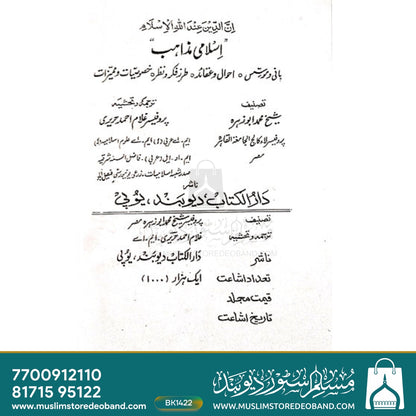 ان الدین عند اللہ الاسلام
"اسلامی مذاہب"
بانی و مؤسس ○ احوال و عقائد ○ طرز فکر و نظر ○ خصوصیات و ممیزات
تصنیف
شیخ محمد ابو زہرہ
پروفیسر لاء کالج الجامعۃ القاہرہ
مصر
ترجمہ و تحشیہ
پروفیسر غلام احمد حریری
ایم۔اے عربی ایم۔اے علوم اسلامیہ
ایم۔او۔ایل (عربی) فاضل السنہ شرقیہ
صدر شعبہ اسلامیات
ناشر
دار الکتاب، دیوبند، یوپی
تصنیف پروفیسر شیخ محمد ابو زہرہ مصر
ترجمہ و تحشیہ غلام احمد حریری۔ ایم۔ اے
ناشر دار الکتاب دیوبند، یوپی
تعداد اشاعت ایک ہزار (۱۰۰۰)
قیمت مجلد
تاریخ اشاعت
7700912110
81715 95122
BK1422
مسلم اسٹور دیوبند
www.muslimstoredeoband.com
WWW.MUSLIMSTOREDEOBAND.COM